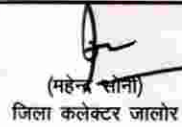 (महेन्द्र सोनी)
जिला कलेक्टर जालोर